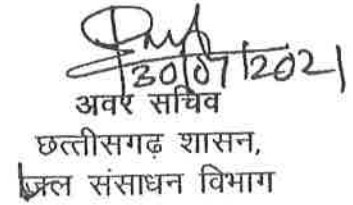 30/07/2021
अवर सचिव
छत्तीसगढ़ शासन,
जल संसाधन विभाग